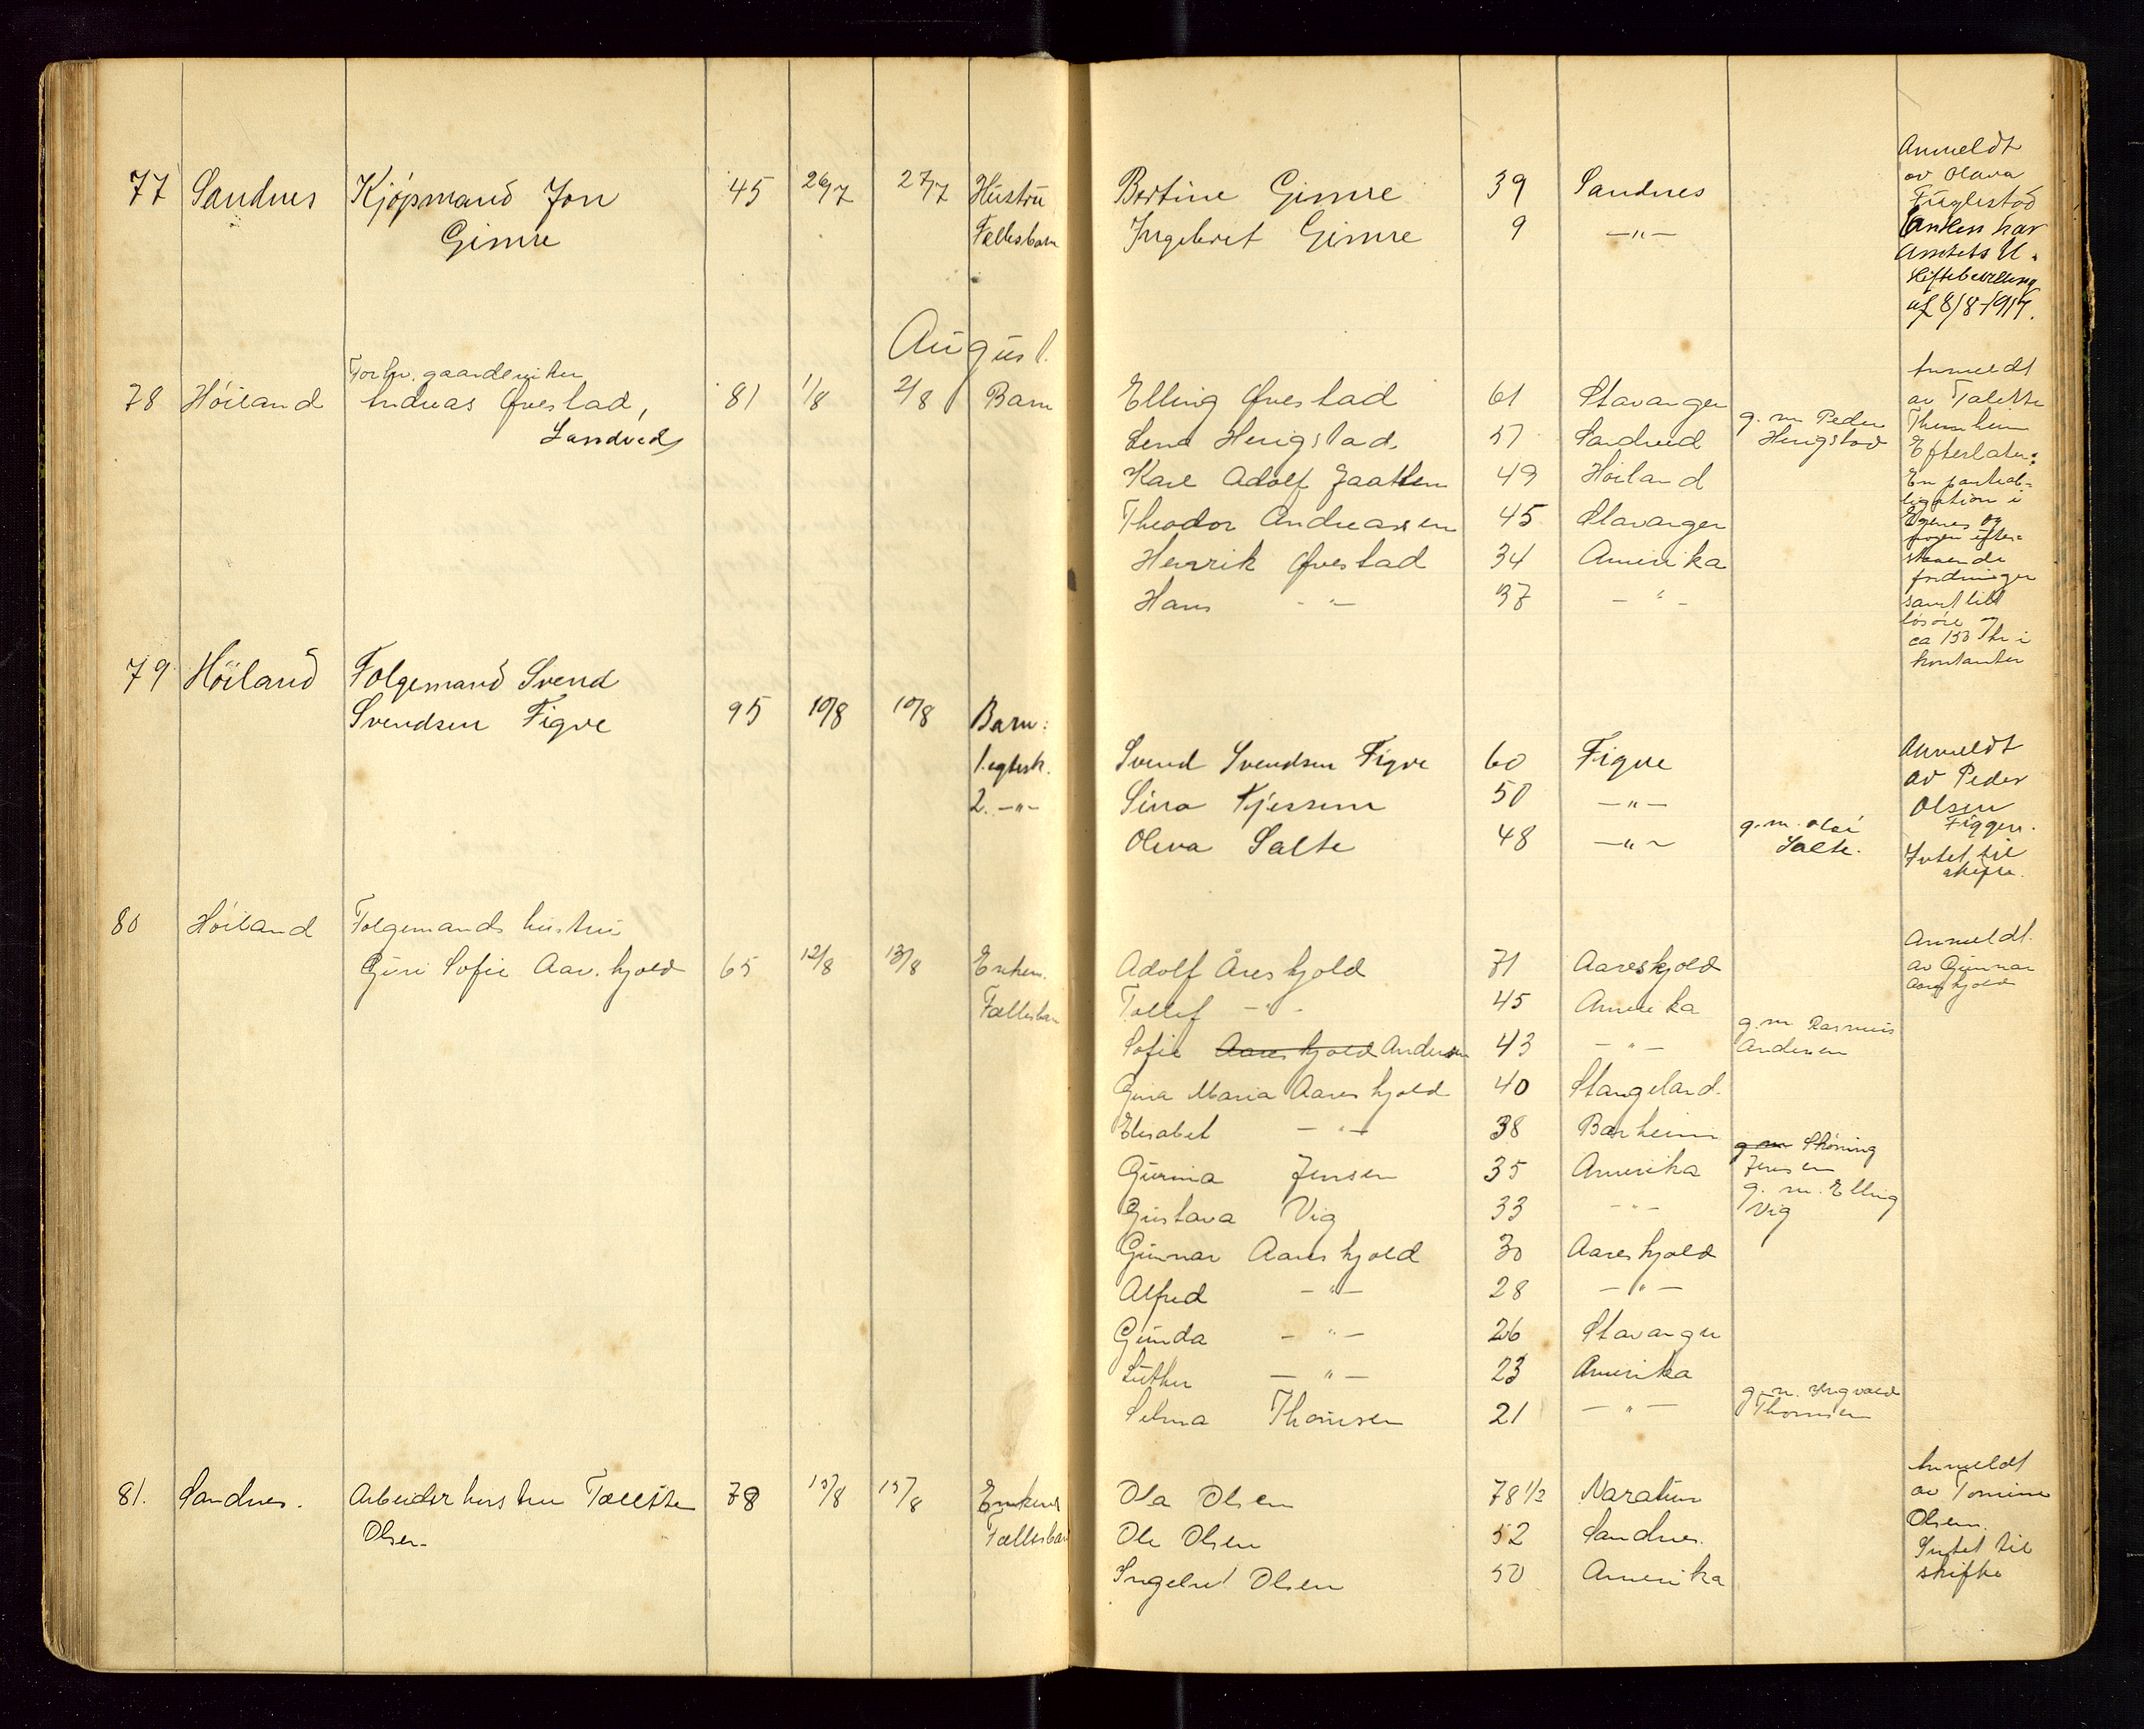 77 Sandnes Kjøpmand Jon 45 26/7 27/7 Hustru Bertine Gimre 39 Sandnes
Gimre Fællesbarn Ingebret Gimre 9 —"—
Anmeldt
av Olava
Fuglestad
Enken har
Amtets U.
skiftebevilling
af 8/8-1917.
August.
Forhv. gaardbruker
78 Høiland Andreas Øvestad, 81 1/8 2/8 Barn Elling Øvestad 61 Stavanger
Sandved Lena Hengstad 57 Sandved g. m Peder Hengstad
Karl Adolf 49 Høiland
Theodor Andreassen 45 Stavanger
Henrik Øvestad 34 Amerika
Hans —"— 37 —"—
Anmeldt
av
Efterlater:
En partiob-
ligation i
og
nogen uteste-
staaende
fordringer
samt litt
løsøre og
ca 150 kr i
kontanter
79 Høiland Folgemand Svend
Svendsen Figve 95 10/8 10/8 Barn:
1. egtesk. Svend Svendsen Figve 60 Figve
2. —"— Sina 50 —"—
Oleva Salte 48 —"— g. m. Salte.
Anmeldt
av Peder
Olsen
Figgen.
Intet til
skifte.
80 Høiland Folgemands hustru
Guri Sofie Aareskjold 65 12/8 13/8 Enkem. Adolf Åreskjold 71 Aareskjold
Fællesbarn Tollef —"— 45 Amerika
Sofie Aareskjold Andersen 43 —"— g. m Rasmus Andersen
Gina Maria Aareskjold 40 Stangeland.
Elisabet —"— 38 Barheim
Gurina Jensen 35 Amerika g m Jensen
Gustava Vig 33 —"— g. m. Elling Vig
Gunnar Aareskjold 30 Aareskjold
Alfred —"— 28 —"—
Gunda —"— 26 Stavanger
Luther —"— 23 Amerika
Selma Thomsen 21 —"— g. m. Ingvald Thomsen
Anmeldt
av Gunnar
Aareskjold
81. Sandnes. Arbeiderhustru 78 15/8 15/8 Enkem Ola Olsen 78 1/2
Olsen. Fællesbarn Ole Olsen 52 Sandnes.
Ingebret Olsen 50 Amerika
Anmeldt
av Tomine
Olsen.
Intet til
skifte